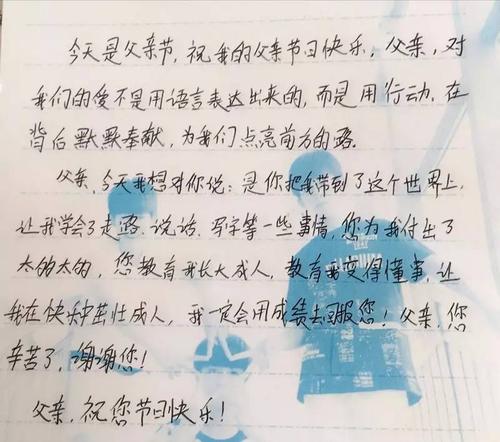 今天是父亲节,祝我的父亲节日快乐,父亲,对
我们的爱不是用语言表达出来的,而是用行动,在
背后默默奉献,为我们点亮前方的路.
父亲,今天我想对你说:是你把我带到了这个世界上,
让我学会了走路.说话.写字等一些事情,您为我付出了
太多太多,您教育我长大成人,教育我变得懂事,让
我在快乐中茁壮成人,我一定会用成绩去回报您!父亲,您
辛苦了,谢谢您!
父亲,祝您节日快乐!